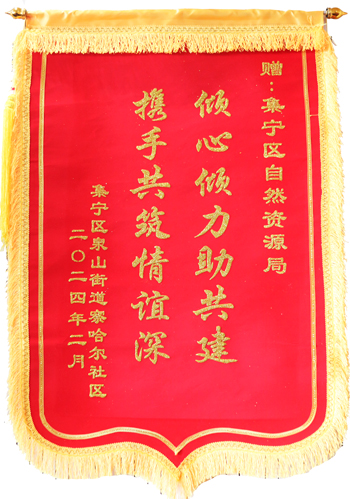 赠：集宁区自然资源局
倾心倾力助共建
携手共筑情谊深
集宁区泉山街道察哈尔社区
二〇二四年二月